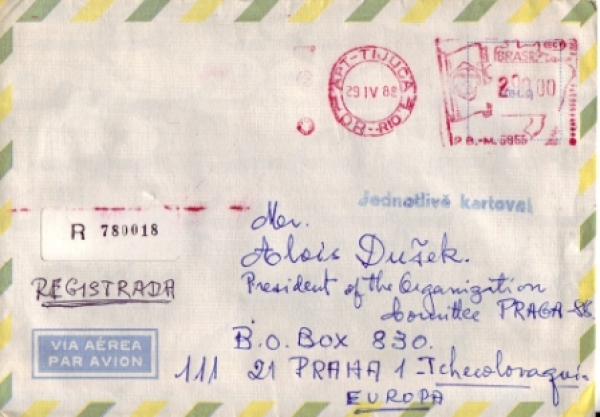 APT-TIJUCA
29 IV 88
DR-RIO
BRASIL
200,00
P.B.-M. 5955
Jednotlivě kartoval
R 780018
REGISTRADA
VIA AÉREA
PAR AVION
Mr.
Alois Dušek.
President of the Organization
Committee PRAGA-88
B.O. BOX 830.
111 21 PRAHA 1 - Tchecolovaqui-
EUROPA